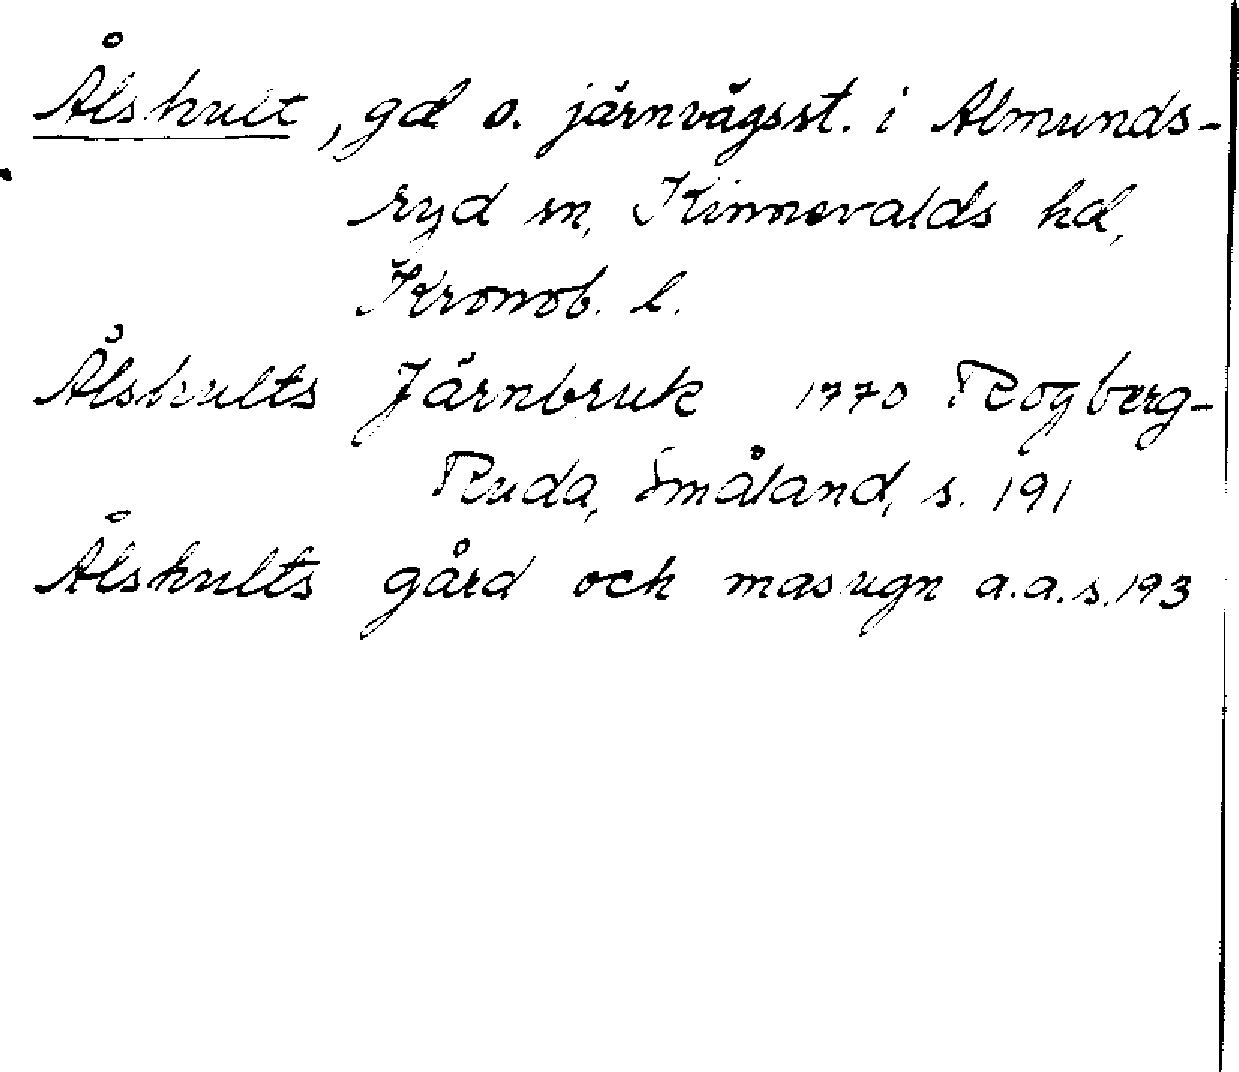 Ålshult, gd o. järnvägsst. i Almunds-
ryd sn, Kinnevalds hd,
Kronob. l.
Ålshults Järnbruk 1770 Rogberg-
Ruda, Småland, s. 191
Ålshults gård och masugn a.a.s. 193